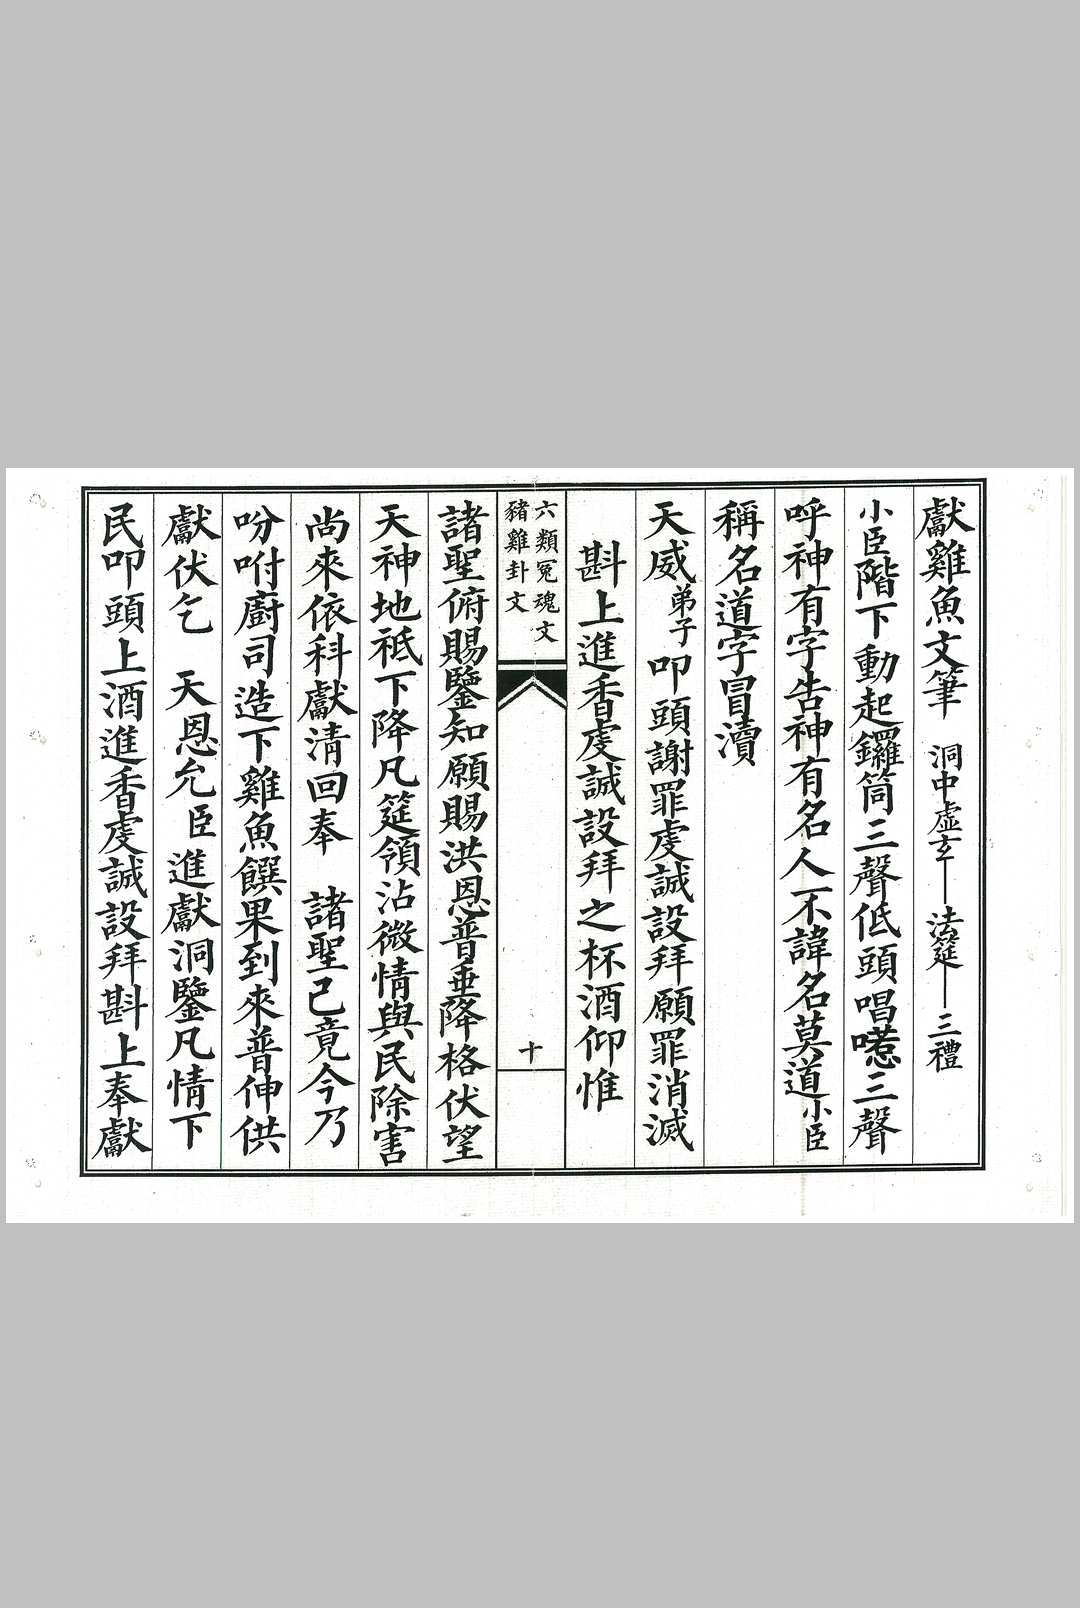 獻雞魚文筆　洞中虛玄－法筵－三禮
小臣階下動起鑼筒三聲低頭唱喏三聲
呼神有字告神有名人不諱名莫道小臣
稱名道字冒瀆
天威弟子叩頭謝罪虔誠設拜願罪消滅
斟上進香虔誠設拜之杯酒仰惟
六類冤魂文
豬雞卦文
十
諸聖俯賜鑒知願賜洪恩普垂降格伏望
天神地祗下降凡筵領沾微情與民除害
尚來依科獻清回奉　諸聖已竟今乃
吩咐廚司造下雞魚饌果到來普伸供
獻伏乞　天恩允臣進獻洞鑒凡情下
民叩頭上酒進香虔誠設拜斟上奉獻